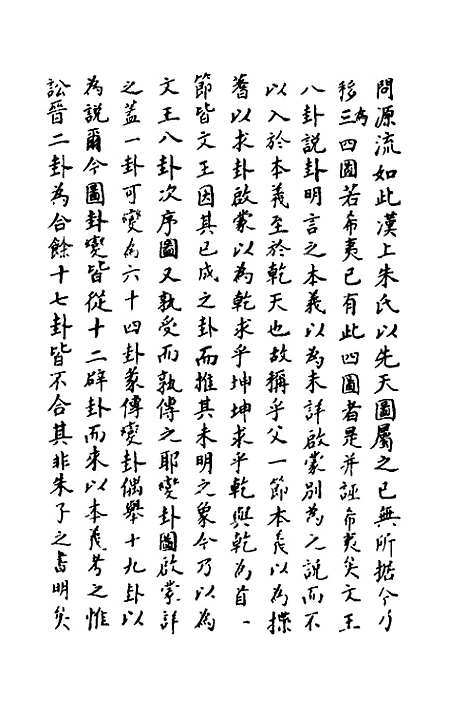 問源流如此漢上朱氏以先天圖屬之已無所据今乃
移為三四圖若希夷已有此四圖者是并誣希夷矣文王
八卦說卦明言之本義以為未詳啟蒙別為之說而不
以入於本義至於乾天也故稱乎父一節本義以為揲
蓍以求卦啟蒙以為乾求乎坤坤求乎乾與乾為首一
節皆文王因其已成之卦而推其未明之象今乃以為
文王八卦次序圖又孰受而孰傳之耶變卦圖啟蒙詳
之蓋一卦可變為六十四卦彖傳變卦偶舉十九卦以
為說爾今圖卦變皆從十二辟卦而來以本義考之惟
訟晉二卦為合餘十七卦皆不合其非朱子之書明矣